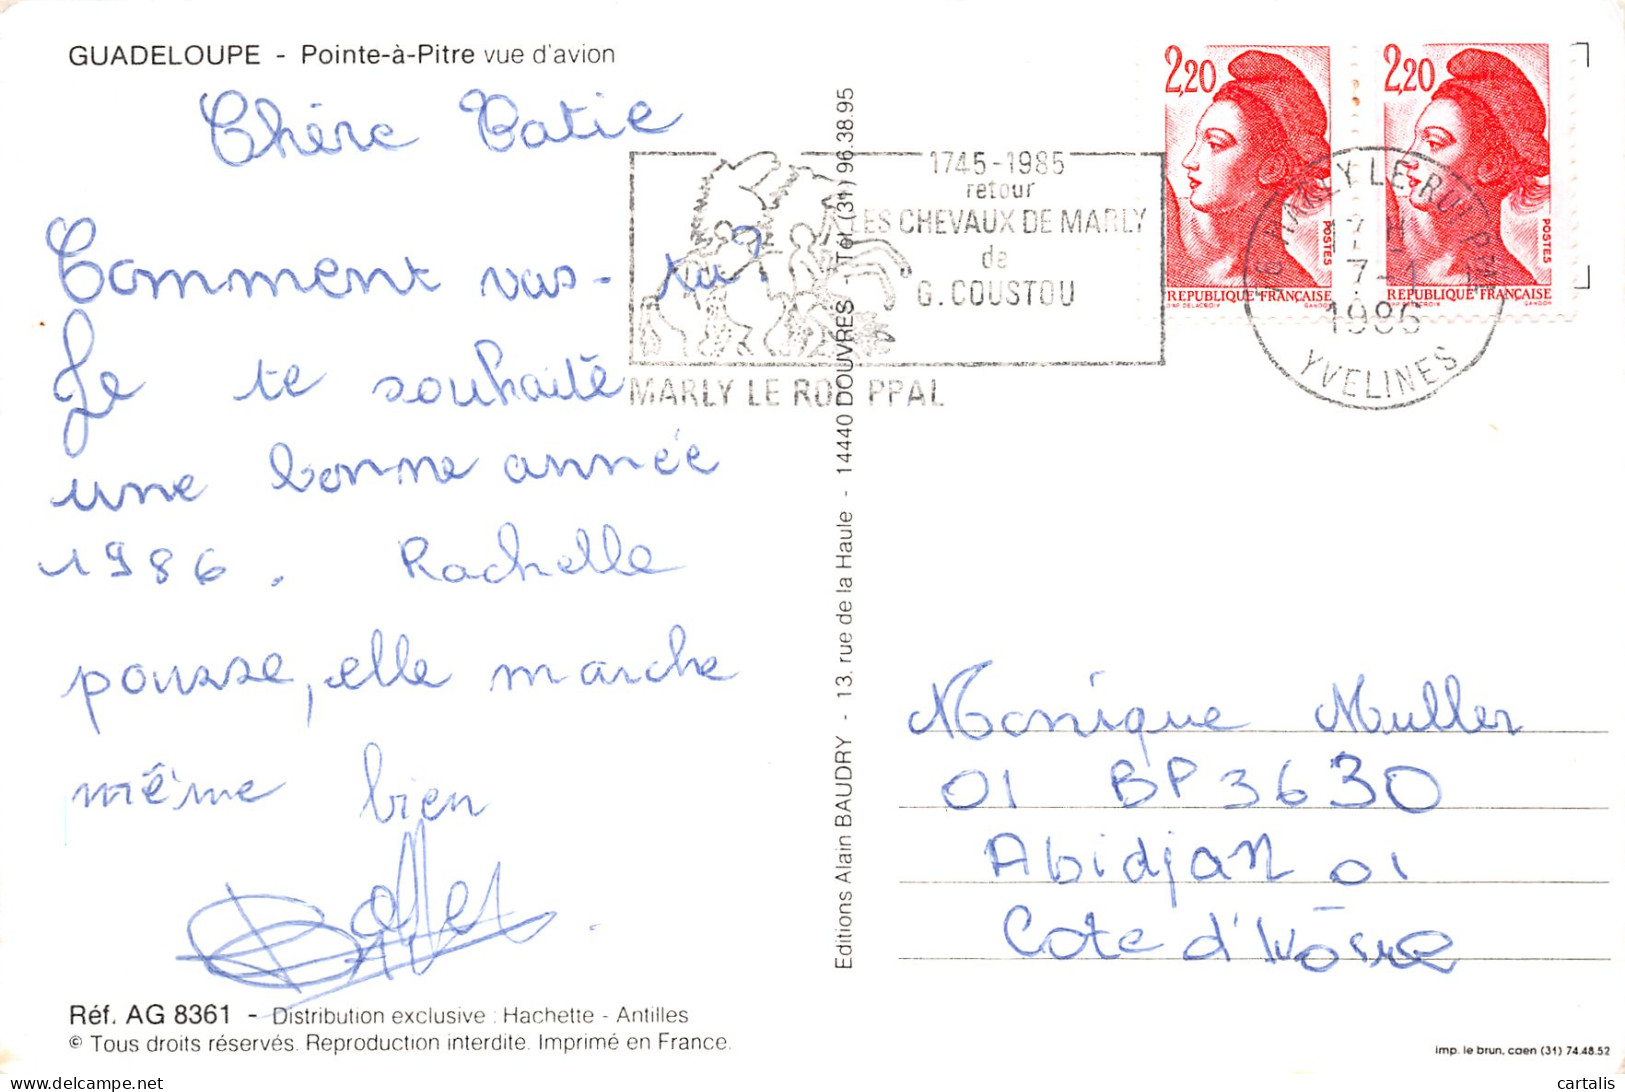 GUADELOUPE - Pointe-à-Pitre vue d'avion
Chère Tatie
Comment vas-tu?
Je te souhaite
une bonne année
1986. Rachelle
pousse, elle marche
même bien
Réf. AG 8361 - Distribution exclusive : Hachette - Antilles
© Tous droits réservés. Reproduction interdite. Imprimé en France.
Editions Alain BAUDRY - 13, rue de la Haule - 14440 DOUVRES - Tél. (31) 96.38.95
1745-1985
retour
LES CHEVAUX DE MARLY
de
G. COUSTOU
MARLY LE ROI PPAL
2,20
POSTES
REPUBLIQUE FRANÇAISE
DELACROIX GANDON
2,20
POSTES
REPUBLIQUE FRANÇAISE
DELACROIX GANDON
MARLY LE ROI PPAL
7-1
1986
YVELINES
Monique Muller
01 BP 3630
Abidjan 01
Cote d'Ivoire
imp. le brun, caen (31) 74.48.52
cartalis